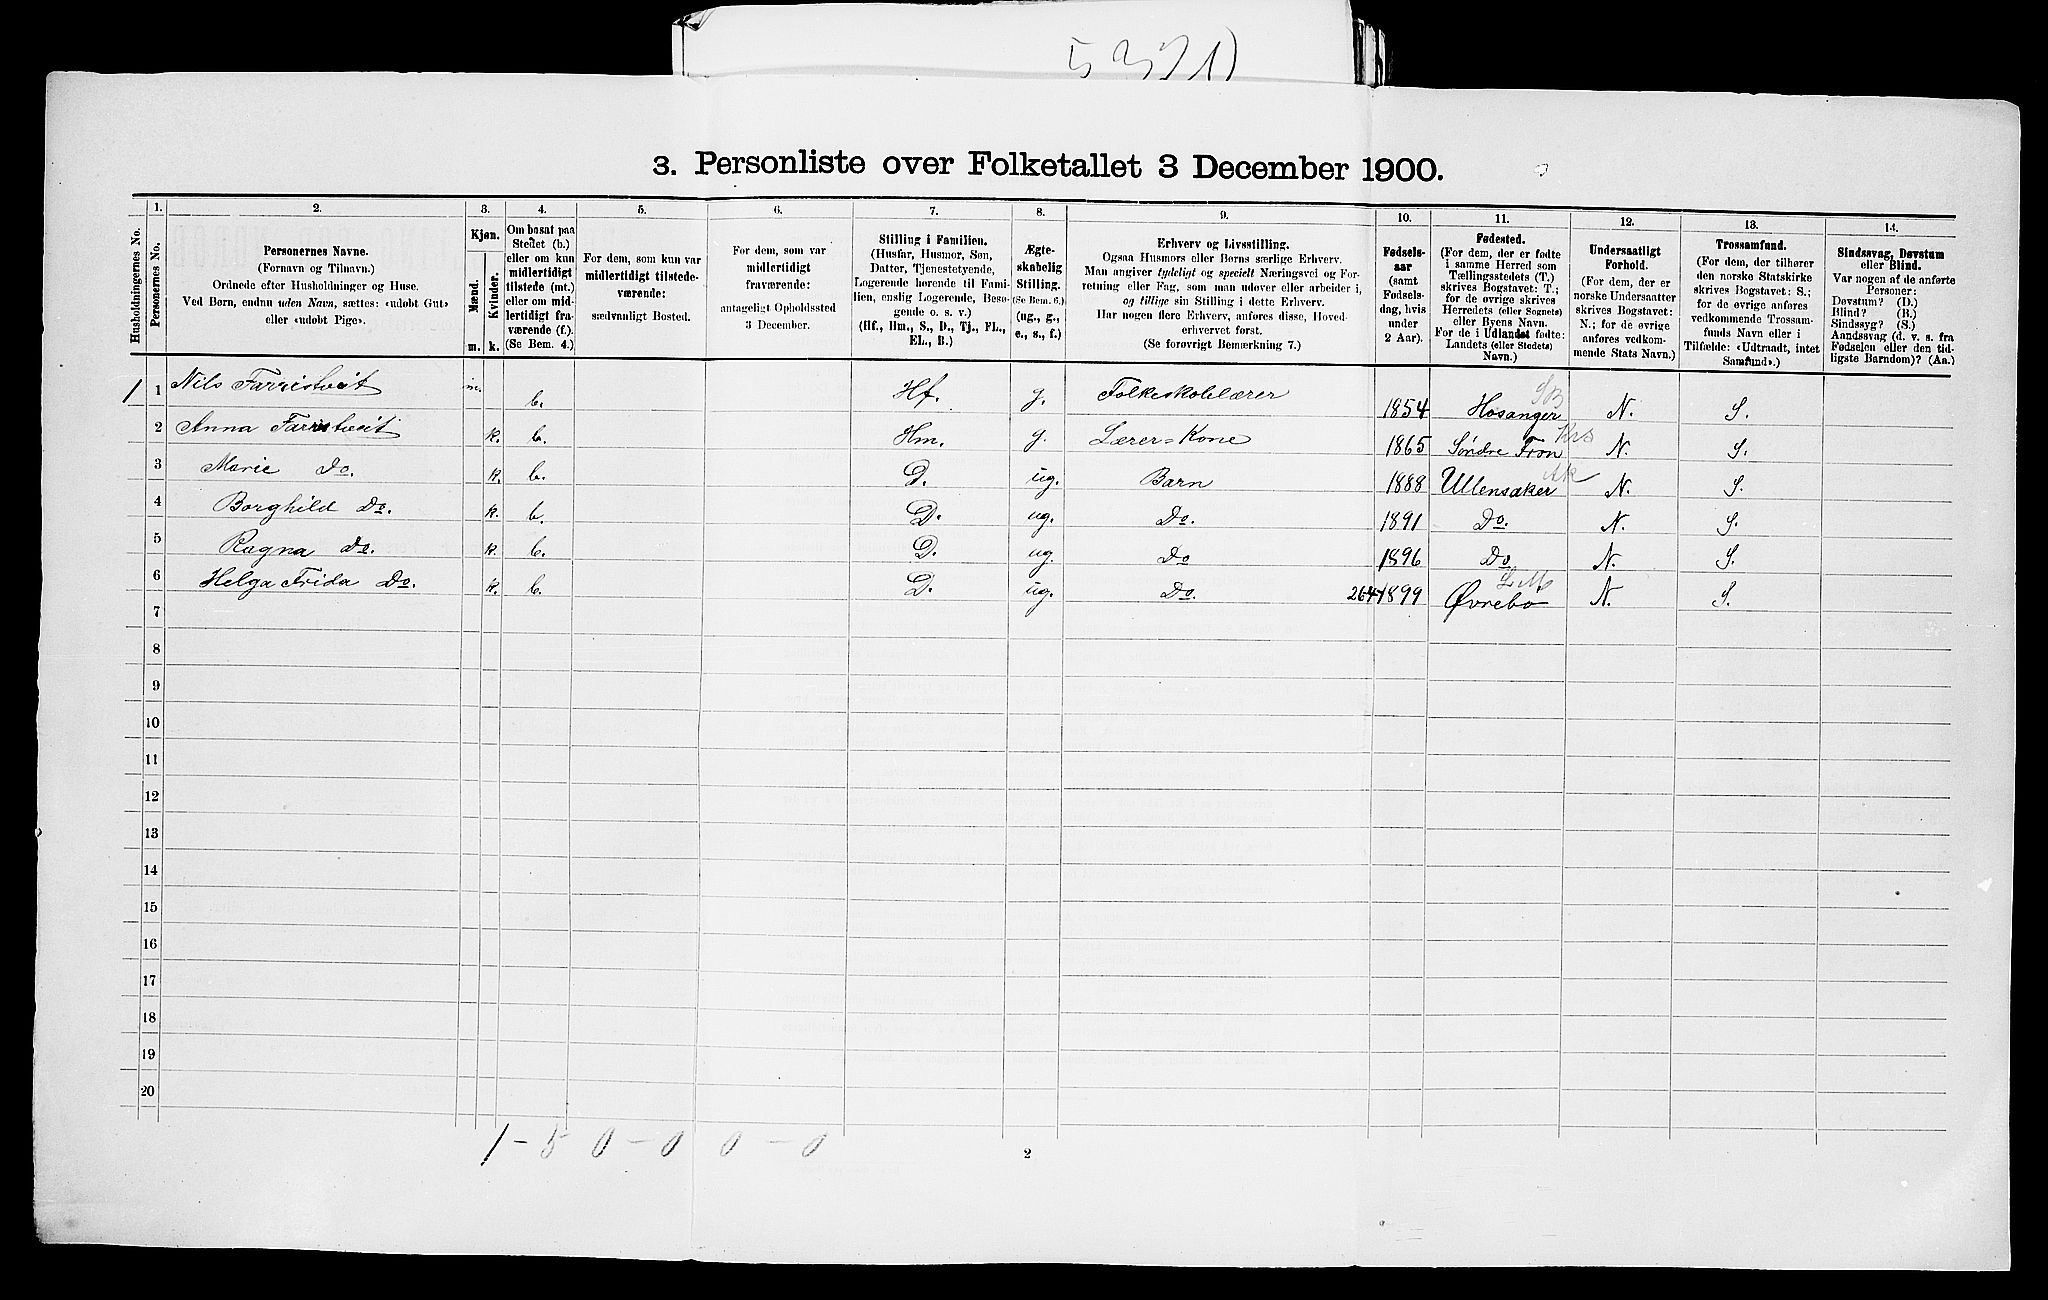 3. Personliste over Folketallet 3 December 1900.
1. 2. 3. 4. 5. 6. 7. 8. 9. 10. 11. 12. 13. 14.
Husholdningernes No.
Personernes No.
Personernes Navne.
(Fornavn og Tilnavn.)
Ordnede efter Husholdninger og Huse.
Ved Børn, endnu uden Navn, sættes: «udøbt Gut»
eller «udøbt Pige».
Kjøn.
Mænd.
Kvinder.
m. k.
Om bosat paa
Stedet (b.)
eller om kun
midlertidigt
tilstede (mt.)
eller om mid-
lertidigt fra-
værende (f.).
(Se Bem. 4.)
For dem, som kun var
midlertidigt tilstede-
værende:
sædvanligt Bosted.
For dem, som var
midlertidigt
fraværende:
antageligt Opholdssted
3 December.
Stilling i Familien.
(Husfar, Husmor, Søn,
Datter, Tjenestetyende,
Logerende hørende til Fami-
lien, enslig Logerende, Besø-
gende o. s. v.)
(Hf., Hm., S., D., Tj., FL.,
EL., B.)
Ægte-
skabelig
Stilling.
(Se Bem. 6.)
(ug., g.,
e., s., f.)
Erhverv og Livsstilling.
Ogsaa Husmors eller Børns særlige Erhverv.
Man angiver tydeligt og specielt Næringsvei og For-
retning eller Fag, som man udøver eller arbeider i,
og tillige sin Stilling i dette Erhverv.
Har nogen flere Erhverv, anføres disse, Hoved-
erhvervet først.
(Se forøvrigt Bemærkning 7.)
Fødsels-
aar
(samt
Fødsels-
dag, hvis
under
2 Aar).
Fødested.
(For dem, der er fødte
i samme Herred som
Tællingsstedets (T.)
skrives Bogstavet: T.;
for de øvrige skrives
Herredets (eller Sognets)
eller Byens Navn.
For de i Udlandet fødte:
Landets (eller Stedets)
Navn.)
Undersaatligt
Forhold.
(For dem, der er
norske Undersaatter
skrives Bogstavet:
N.; for de øvrige
anføres vedkom-
mende Stats Navn.)
Trossamfund.
(For dem, der tilhører
den norske Statskirke
skrives Bogstavet: S.;
for de øvrige anføres
vedkommende Trossam-
funds Navn eller i
Tilfælde: «Udtraadt, intet
Samfund».)
Sindssvag, Døvstum
eller Blind.
Var nogen af de anførte
Personer:
Døvstum? (D.)
Blind? (B.)
Sindssyg? (S.)
Aandssvag (d. v. s. fra
Fødselen eller den tid-
ligste Barndom)? (Aa.)
1 1 Nils Farristveit m. b. Hf. g. Folkeskolelærer 1854 Hosanger SB N. S.
2 Anna Farristveit k. b. Hm. g. Lærer=Kone 1865 Søndre Fron Krs N. S.
3 Marie Do. k. b. D. ug. Barn 1888 Ullensaker Ak N. S.
4 Borghild Do. k. b. D. ug. Do. 1891 Do. N. S.
5 Ragna Do. k. b. D. ug. Do 1896 Do N. S.
6 Helga Frida Do. k. b. D. ug. Do. 26 4 1899 Øvrebø LM N. S.
7
8
9
10
11
12
13
14
15
16
17
18
19
20
1 - 5 0 - 0 0 - 0
2